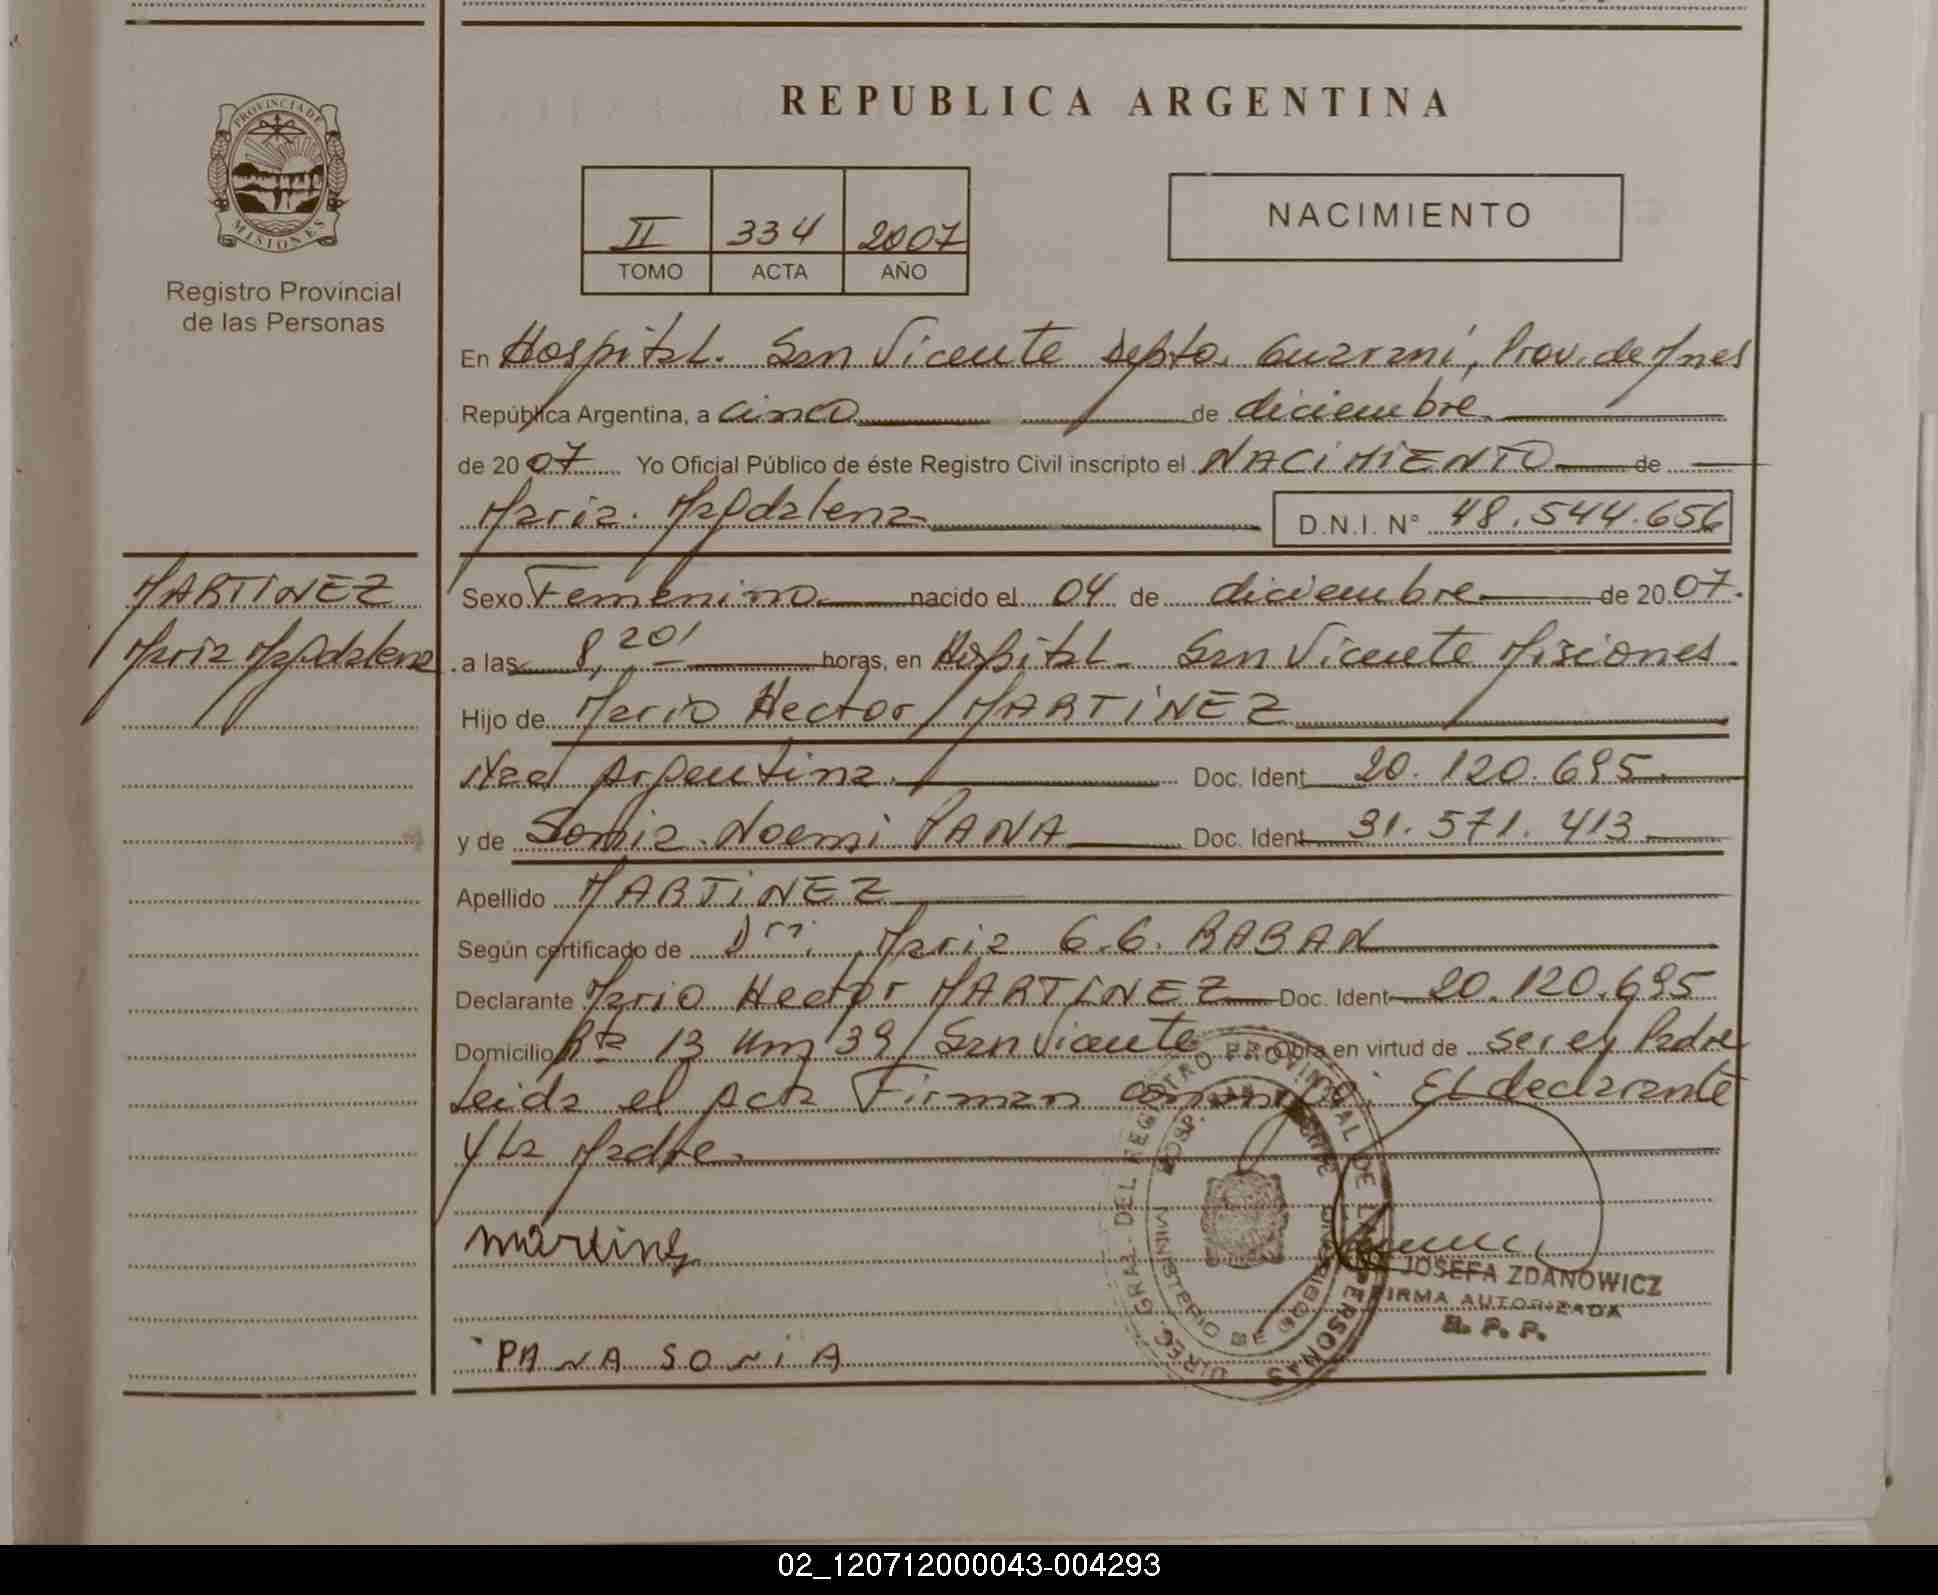 REPUBLICA ARGENTINA
PROVINCIA DE
MISIONES
Registro Provincial
de las Personas
II 334 2007
TOMO ACTA AÑO
NACIMIENTO
En Hospital. San Vicente Depto. Guaraní, Prov. de Mnes
República Argentina, a cinco de diciembre
de 2007 Yo Oficial Público de éste Registro Civil inscripto el NACIMIENTO de
María Magdalena D.N.I. N° 48.544.656
MARTINEZ
Maria Magdalena
Sexo Femenino nacido el 04 de diciembre de 2007.
a las 8,20' horas, en Hospital San Vicente Misiones.
Hijo de Mario Hector MARTINEZ
Nac Argentina. Doc. Ident 20.120.695
y de Sonia Noemi PANA Doc. Ident 31.571.413
Apellido MARTINEZ
Según certificado de Maria G.G. RABAN
Declarante Mario Hector MARTINEZ Doc. Ident 20.120.695
Domicilio Rta 13 Km 39 San Vicente Obra en virtud de ser el Padre
Leida el Acta Firman conmigo: El declarante
y La Madre.
Martinez
PANA SONIA
DIREC. GRAL. DEL REGISTRO PROVINCIAL DE LAS PERSONAS
MINISTERIO DE GOBIERNO
JOSEFA ZDANOWICZ
FIRMA AUTORIZADA
R. P. P.
02_120712000043-004293